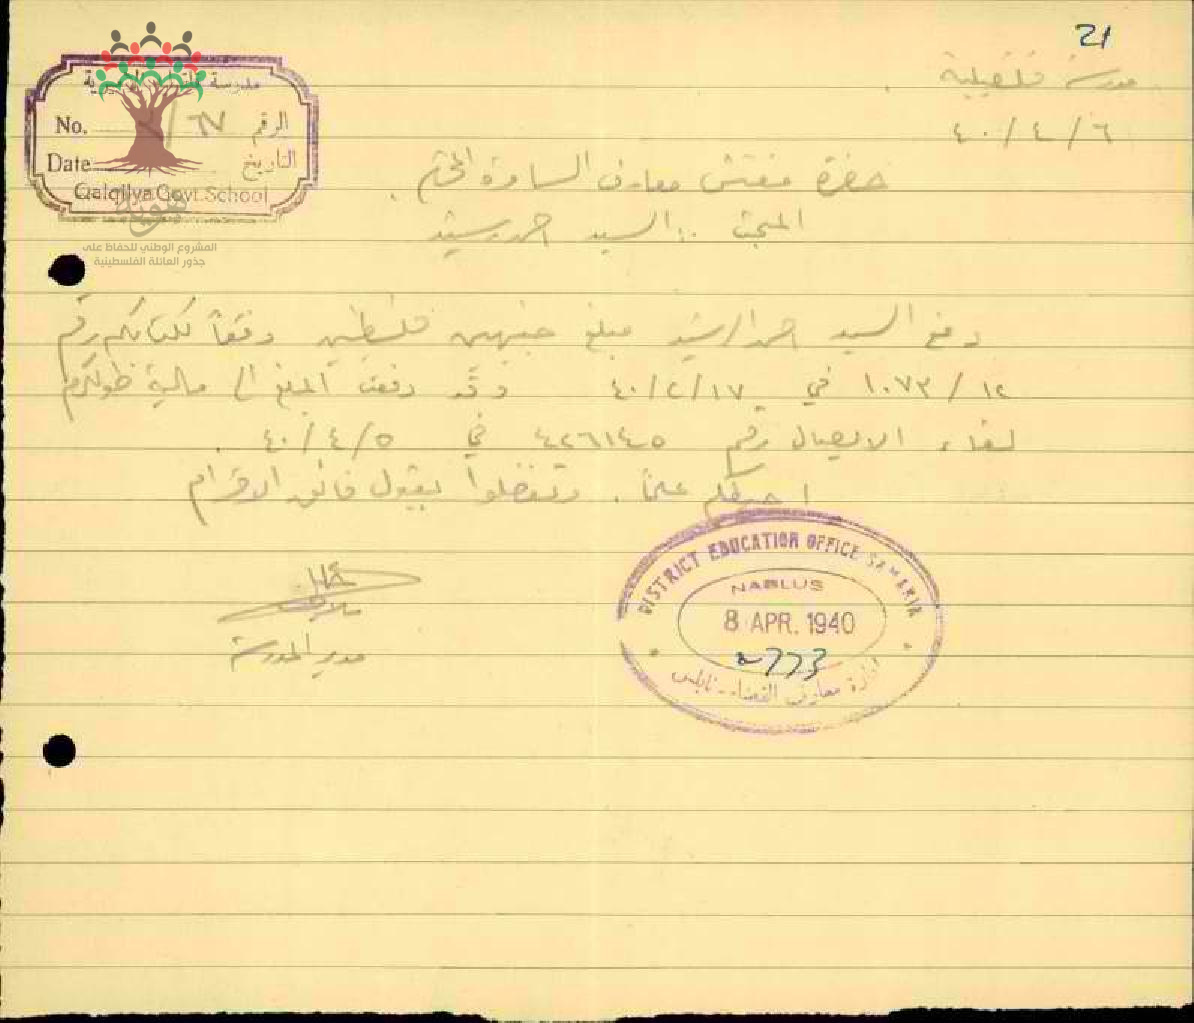 21
مدرسة قلقيلية
٤٠/٤/٦
مدرسة الاميرية
No. ٦٧/ الرقم
Date التاريخ
Qalqilya Govt. School
هوية
المشروع الوطني للحفاظ على
جذور العائلة الفلسطينية
حضرة مفتش معارف السامرة المحترم
المبحث :: السيد احمد رشيد
دفع السيد احمد الرشيد مبلغ جنيهين فلسطين وفقاً لكتابكم رقم
١٠٧٣/١٢ في ٤٠/٢/١٧ وقد دفعت المبلغ الى مالية طولكرم
لقاء الايصال رقم في ٤٠/٤/٥ .
اخبركم علماً . وتفضلوا بقبول فائق الاحترام
مدير المدرسة
DISTRICT EDUCATION OFFICE SAMARIA
NABLUS
8 APR. 1940
ادارة معارف القضاء - نابلس